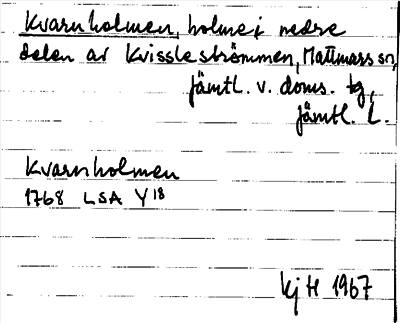 Kvarnholmen, holme i nedre
delen av Kvissleströmmen, Mattmars sn,
Jämtl. v. doms. tg,
Jämtl. L.
Kvarnholmen
1768 LSA Y18
Kj H 1967